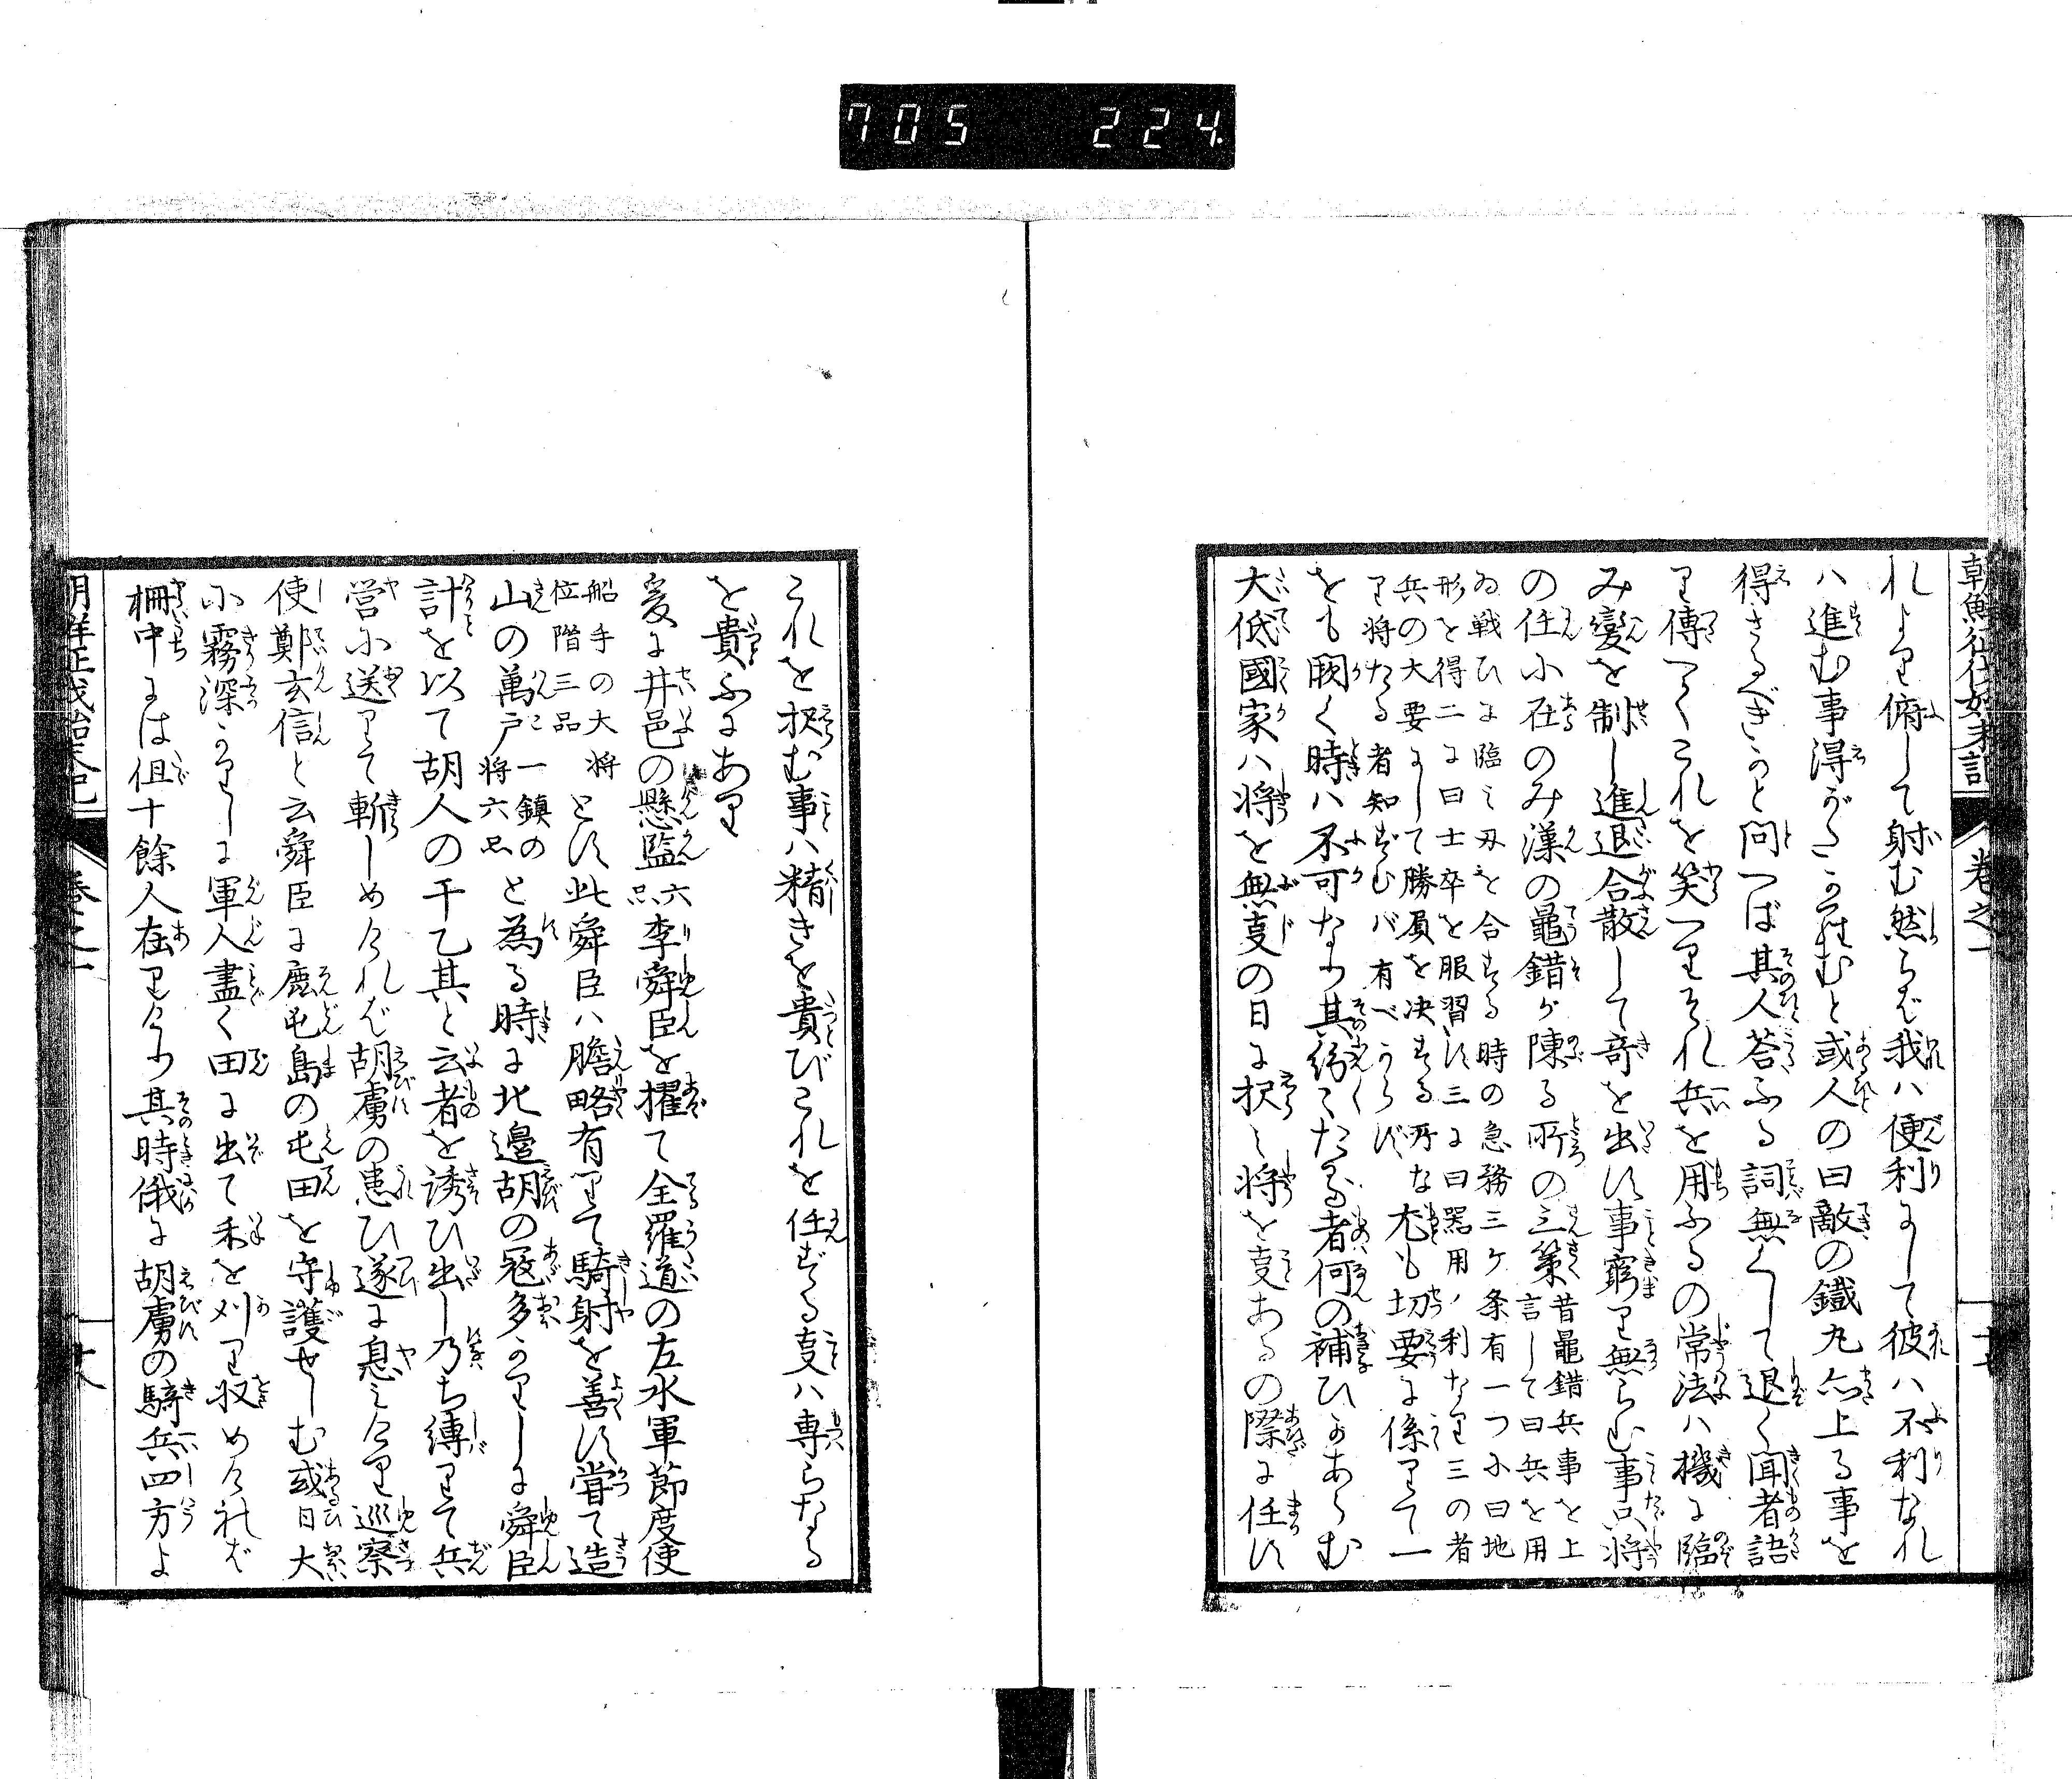 705 224
朝鮮征伐始末記 巻之一
れより俯して射む然らば我ハ便利にして彼ハ不利なれ
ハ進む事得がたからむと或人の曰敵の鐵丸亦上る事を
得さるべきかと問へば其人荅ふる詞無くして退く聞者語
り傳へてこれを笑へりそれ兵を用ふるの常法ハ機に臨
み變を制し進退合散して奇を出す事窮り無らむ事只将
の任に在のみ漢の鼂錯が陳る所の三策昔鼂錯兵事を上
言して曰兵を用
ゐ戦ひに臨み刃を合する時の急務三ケ条有一つに曰地
形を得二に曰士卒を服習す三に曰器用ノ利なり三の者
兵の大要にして勝負を决する所な
り将たる者知ずむバ有べからず
尤も切要に係りて一
をも闕く時ハ不可なり其紛へたる者何の補ひかあらむ
大低國家ハ将を無事の日に択ミ将を事あるの際に任す
これを択む事ハ精きを貴びこれを任ずる事ハ専らなる
を貴ふにあり
爰に井邑の懸監六品李舜臣を擢て全羅道の左水軍節度使
船手の大将
位階三品
とす此舜臣ハ膽略有りて騎射を善す甞て造
山の萬戸一鎮の
将六品
と為る時に北邊胡の冦多かりしに舜臣
計を以て胡人の干乙其と云者を誘ひ出し乃ち縛りて兵
営に送りて斬しめければ胡虜の患ひ遂に息ミけり巡察
使鄭玄信と云舜臣に鹿屯島の屯田を守護せしむ或日大
に霧深かりしに軍人盡く田に出て禾を刈り収めければ
柵中には但十餘人在りけり其時俄に胡虜の騎兵四方よ
朝鮮征伐始末記 巻之一